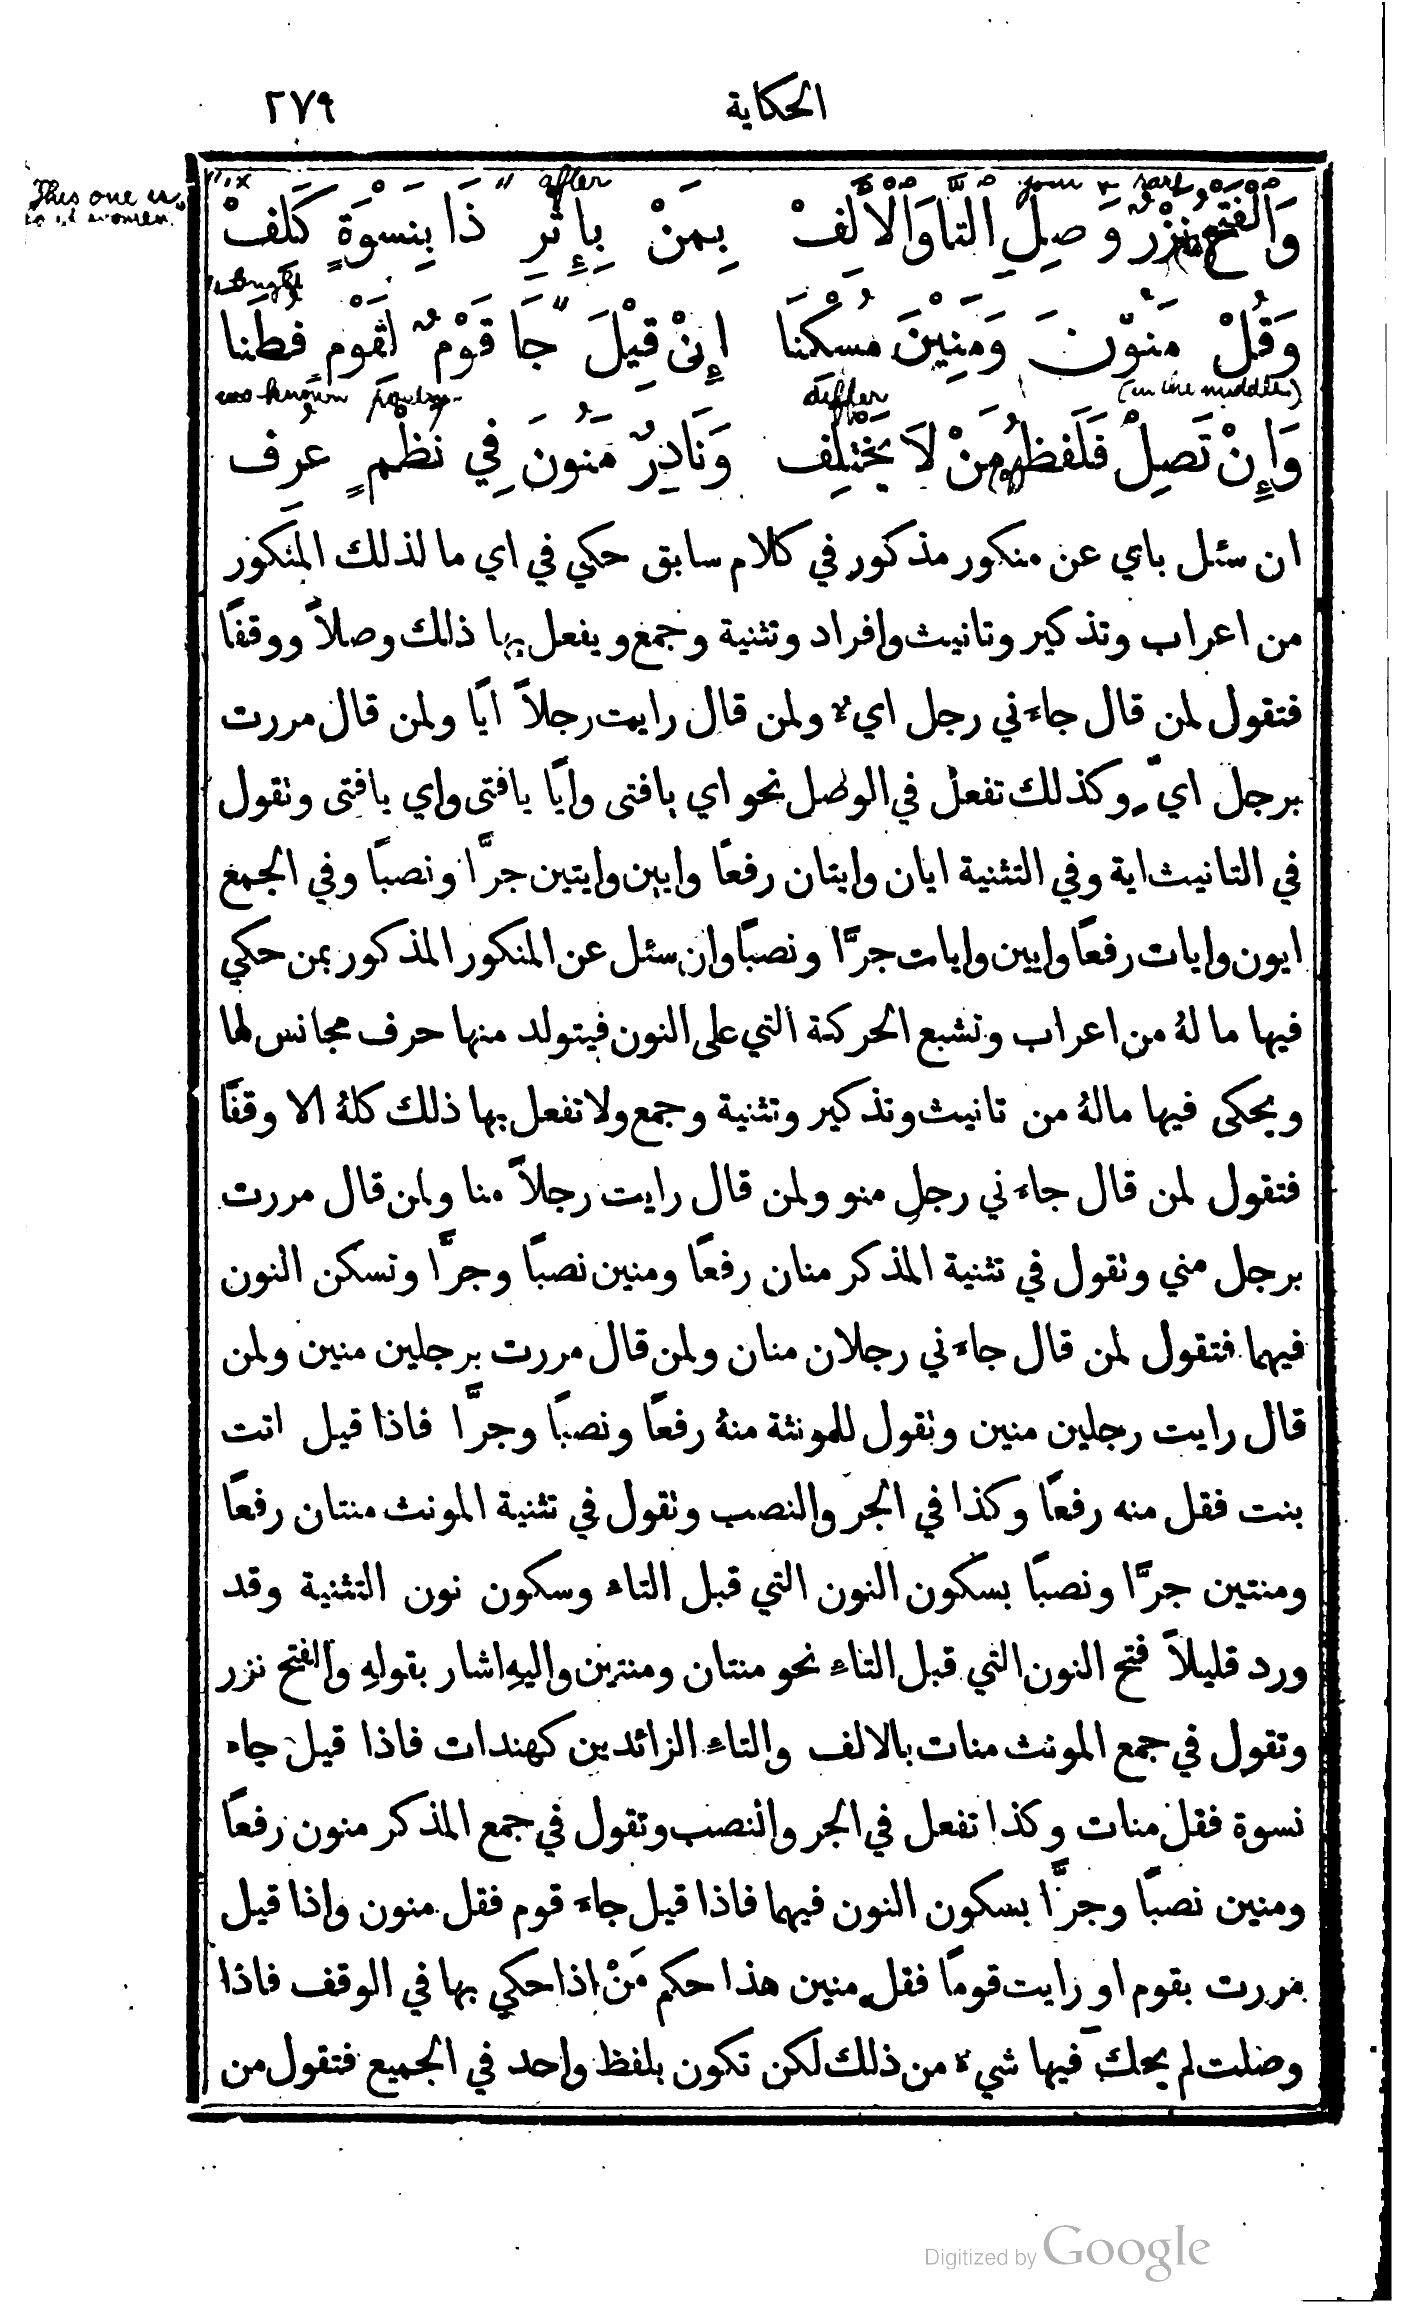 الحكاية ٢٧٩
This one is
women.
after
join
rare
وَالْفَتْحُ نَزْرٌ وَصِلِ التَّا وَالْأَلِفْ بِمَنْ بِإِثْرِ ذَا بِنِسْوَةٍ كَلِفْ
bright
وَقُلْ مَنُونَ وَمَنِينَ مُسْكِنَا إِنْ قِيْلَ جَا قَوْمٌ لِقَوْمٍ فُطَنَا
known poetry
differ
(in the middle)
وَإِنْ تَصِلْ فَلَفظُ مَنْ لَا يَخْتَلِف وَنَادِرٌ مَنُونَ فِي نَظْمٍ عُرِف
ان سئل باي عن منكور مذكور في كلام سابق حكي في اي ما لذلك المنكور
من اعراب وتذكير وتانيث وافراد وتثنية وجمع ويفعل بها ذلك وصلاً ووقفًا
فتقول لمن قال جاءَني رجل ايٌ ولمن قال رايت رجلاً ايًا ولمن قال مررت
برجل ايٍّ وكذلك تفعل في الوصل نحو اي يافتى وايًا يافتى واي يافتى وتقول
في التانيث اية وفي التثنية ايان وايتان رفعًا وايين وايتين جرًّا ونصبًا وفي الجمع
ايون وايات رفعًا وايين وايات جرًّا ونصبًا وان سئل عن المنكور المذكور بمن حكي
فيها ما لهُ من اعراب وتشبع الحركة التي على النون فيتولد منها حرف مجانس لها
ويحكى فيها مالهُ من تانيث وتذكير وتثنية وجمع ولا تفعل بها ذلك كلهُ الا وقفًا
فتقول لمن قال جاءَني رجل منو ولمن قال رايت رجلاً منا ولمن قال مررت
برجل مني وتقول في تثنية المذكر منان رفعًا ومنين نصبًا وجرًّا وتسكن النون
فيهما فتقول لمن قال جاءَني رجلان منان ولمن قال مررت برجلين منين ولمن
قال رايت رجلين منين وتقول للمونثة منهُ رفعًا ونصبًا وجرًّا فاذا قيل اتت
بنت فقل منه رفعًا وكذا في الجر والنصب وتقول في تثنية المونث منتان رفعًا
ومنتين جرًّا ونصبًا بسكون النون التي قبل التاء وسكون نون التثنية وقد
ورد قليلاً فتح النون التي قبل التاءِ نحو منتان ومنتين واليهِ اشار بقولهِ والفتح نزر
وتقول في جمع المونث منات بالالف والتاءِ الزائدين كهندات فاذا قيل جاء
نسوة فقل منات وكذا تفعل في الجر والنصب وتقول في جمع المذكر منون رفعًا
ومنين نصبًا وجرًّا بسكون النون فيهما فاذا قيل جاءَ قوم فقل منون واذا قيل
مررت بقوم او رايت قومًا فقل منين هذا حكم مَنْ اذا حكي بها في الوقف فاذا
وصلت لم يحكَ فيها شيءٌ من ذلك لكن تكون بلفظ واحد في الجميع فتقول من
Digitized by Google